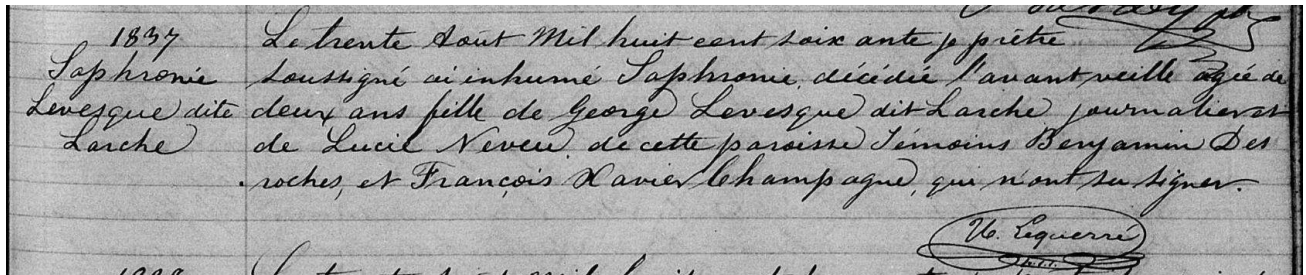 1837
Sophronie
Levesque dite
Larche
Le trente Août Mil huit cent soix ante je prêtre
soussigné ai inhumé Sophronie, décédée l'avant veille agée de
deux ans fille de George Levesque dit Larche journalier et
de Lucie Neveu de cette paroisse Témoins Benjamin Des
roches, et François Xavier Champagne, qui n'ont su signer.